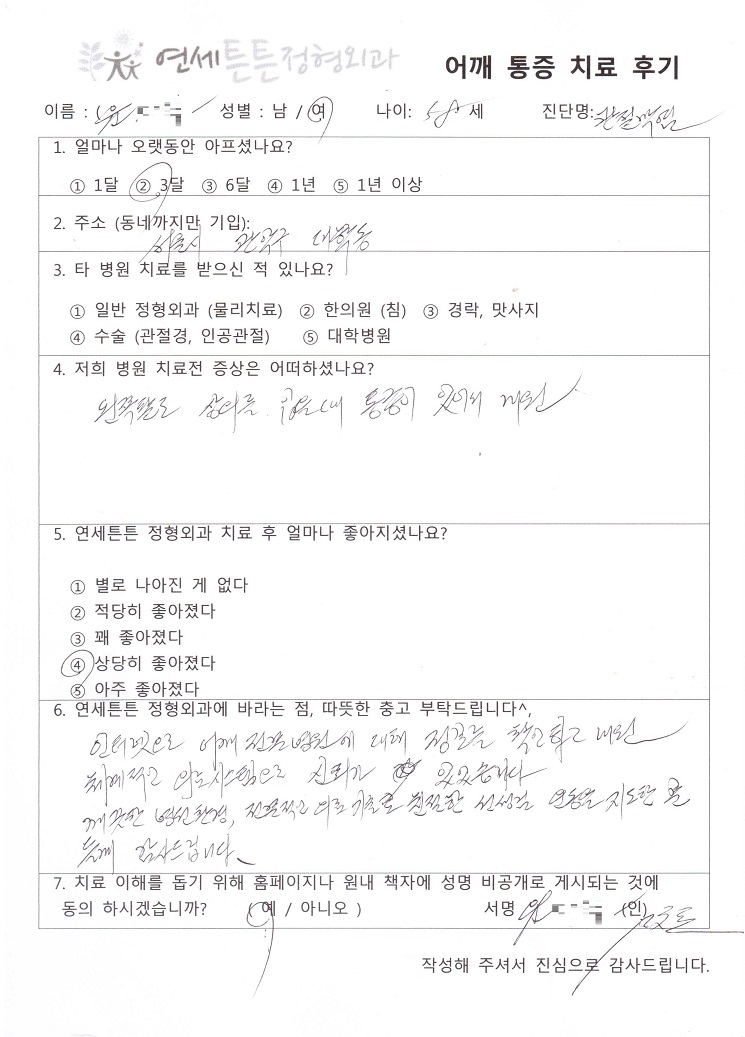 연세튼튼정형외과
어깨 통증 치료 후기
이름 : 성별 : 남 / 여 나이: 58 세 진단명: 관절꺽임
1. 얼마나 오랫동안 아프셨나요?
① 1달 ② 3달 ③ 6달 ④ 1년 ⑤ 1년 이상
2. 주소 (동네까지만 기입):
서울시 관악구 대학동
3. 타 병원 치료를 받으신 적 있나요?
① 일반 정형외과 (물리치료) ② 한의원 (침) ③ 경락, 맛사지
④ 수술 (관절경, 인공관절) ⑤ 대학병원
4. 저희 병원 치료전 증상은 어떠하셨나요?
왼쪽팔로 상의를 통증이 있어서 내원
5. 연세튼튼 정형외과 치료 후 얼마나 좋아지셨나요?
① 별로 나아진 게 없다
② 적당히 좋아졌다
③ 꽤 좋아졌다
④ 상당히 좋아졌다
⑤ 아주 좋아졌다
6. 연세튼튼 정형외과에 바라는 점, 따뜻한 충고 부탁드립니다^,
인터넷으로 어깨 전문병원에 대해 정보를 확인하고 내원
체계적인 의료시스템으로 신뢰가 있었습니다
깨끗한 병원환경, 전문적인 의료기술로 친절한 선생님 운동을 지도한 분
들께 감사드립니다
7. 치료 이해를 돕기 위해 홈페이지나 원내 책자에 성명 비공개로 게시되는 것에
동의 하시겠습니까? ( 예 / 아니오 ) 서명 (인)
작성해 주셔서 진심으로 감사드립니다.